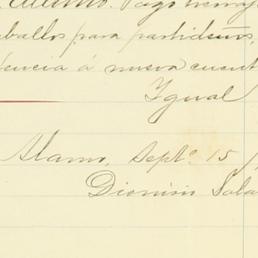 Pago
caballos para partideños,
á nueva cuent
Igual
Alamo, Sept. 15
Dionisio Sala